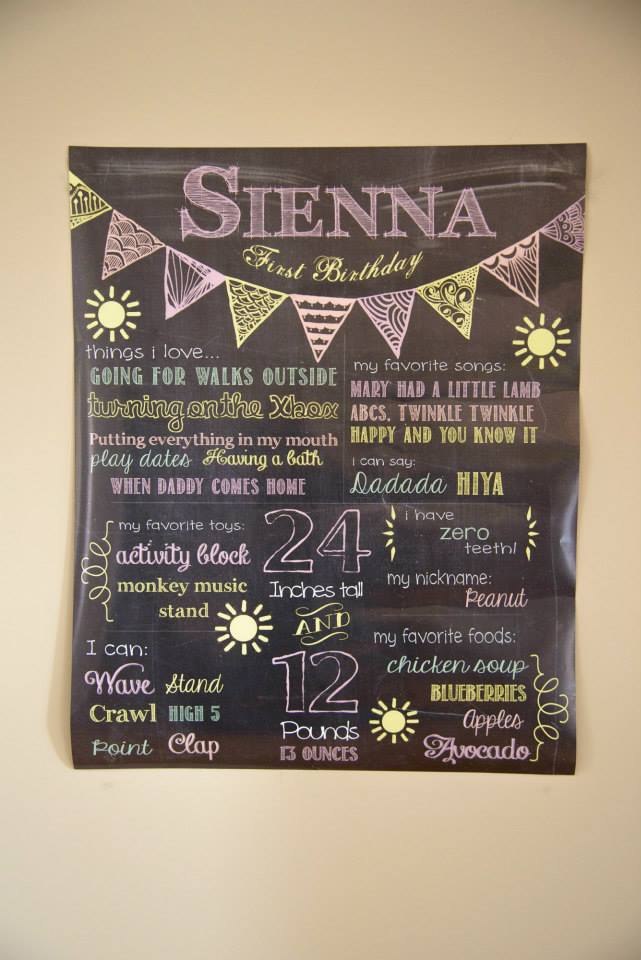 SIENNA
First Birthday
things i love...
GOING FOR WALKS OUTSIDE
turning on the Xbox
Putting everything in my mouth
play dates Having a bath
WHEN DADDY COMES HOME
my favorite songs:
MARY HAD A LITTLE LAMB
ABCS, TWINKLE TWINKLE
HAPPY AND YOU KNOW IT
i can say:
Dadada HIYA
my favorite toys:
activity block
monkey music
stand
24
Inches tall
AND
12
Pounds
13 OUNCES
i have
zero
teeth!
my nickname:
Peanut
I can:
Wave Stand
Crawl HIGH 5
Point Clap
my favorite foods:
chicken soup
BLUEBERRIES
Apples
Avocado